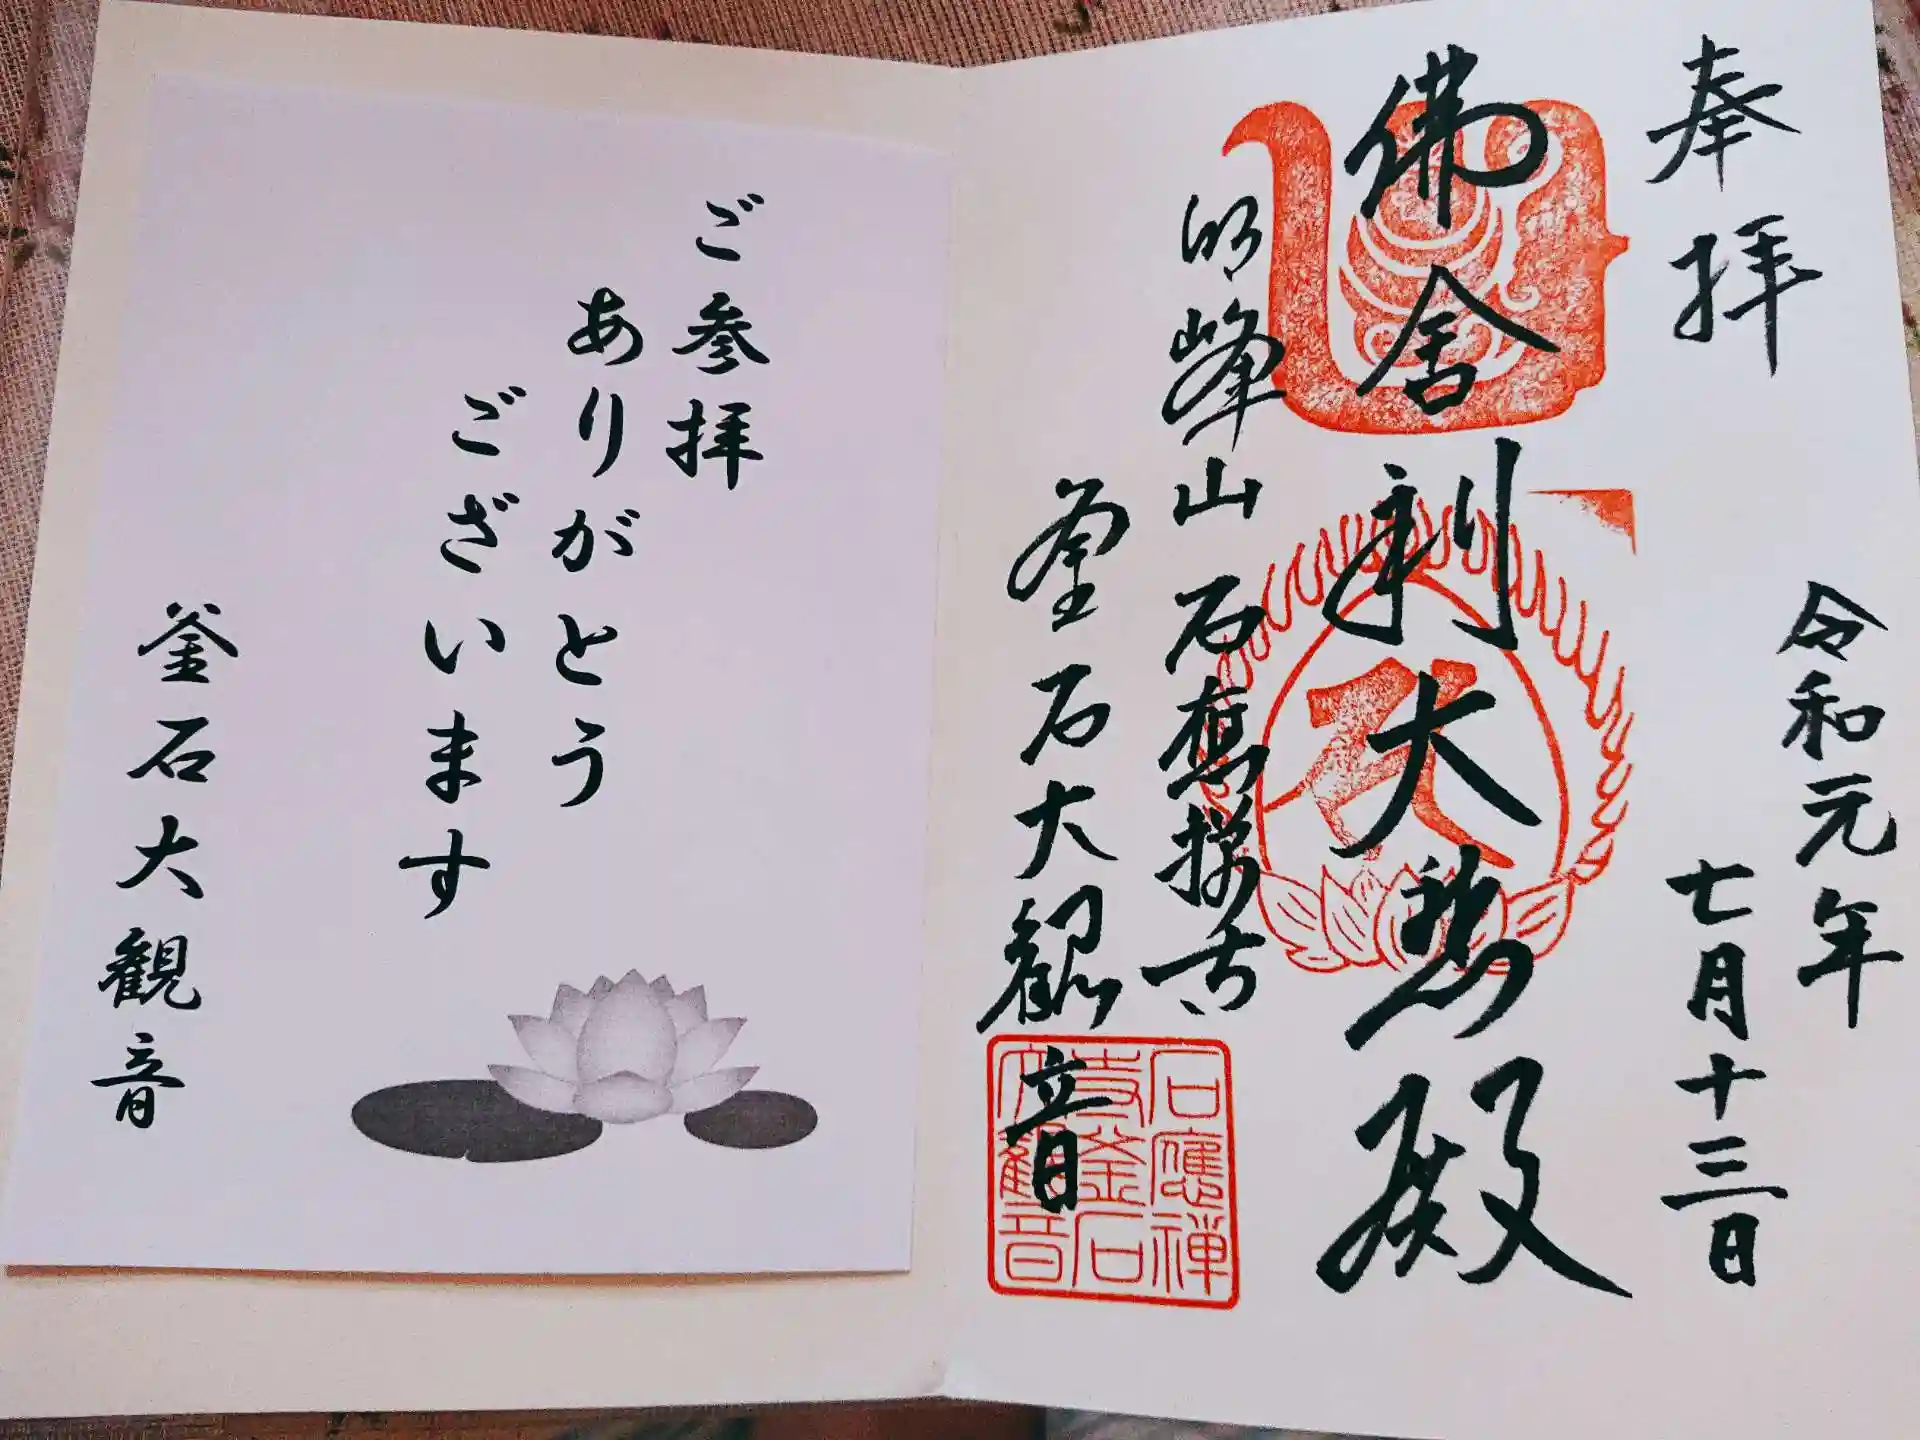 奉拝
令和元年
七月十三日
佛舎利大悲殿
明峰山石應禅寺
釜石大観音
石應禅
寺釜石
大観音
ご参拝
ありがとう
ございます
釜石大観音